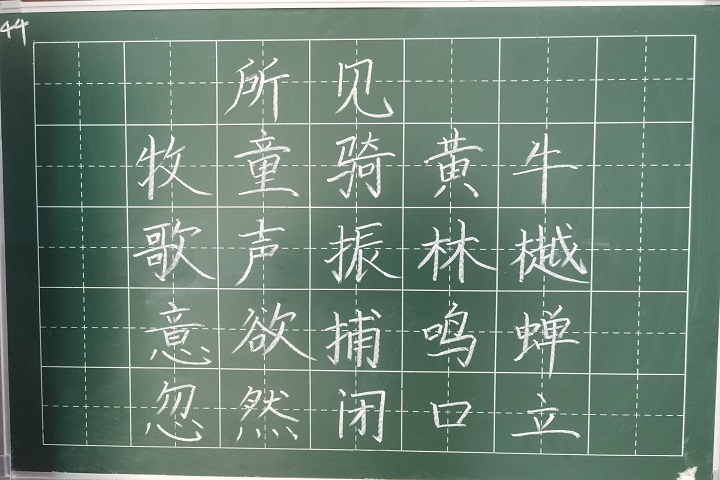 44
所见
牧童骑黄牛
歌声振林樾
意欲捕鸣蝉
忽然闭口立